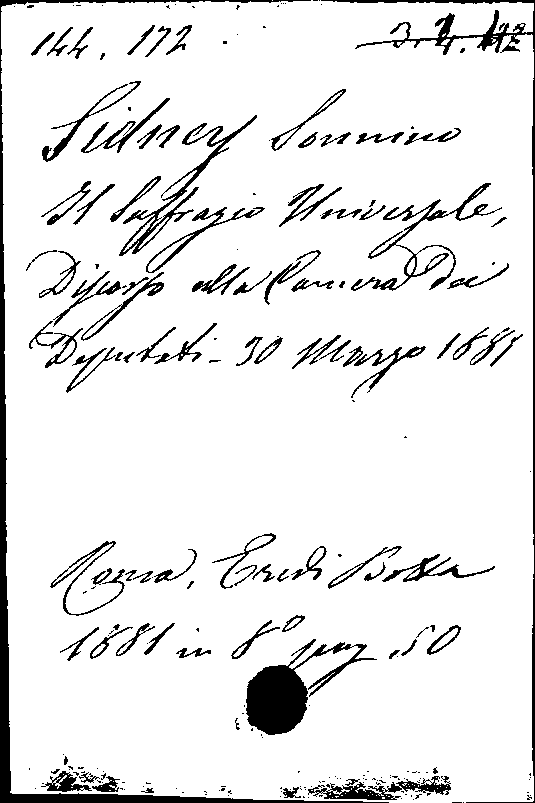 144. 172
Sidney Sonnino
Il Suffragio Universale,
Discorso alla Camera dei
Deputati - 30 Marzo 1881
Roma, Eredi Botta
1881 in 8º pag. 50